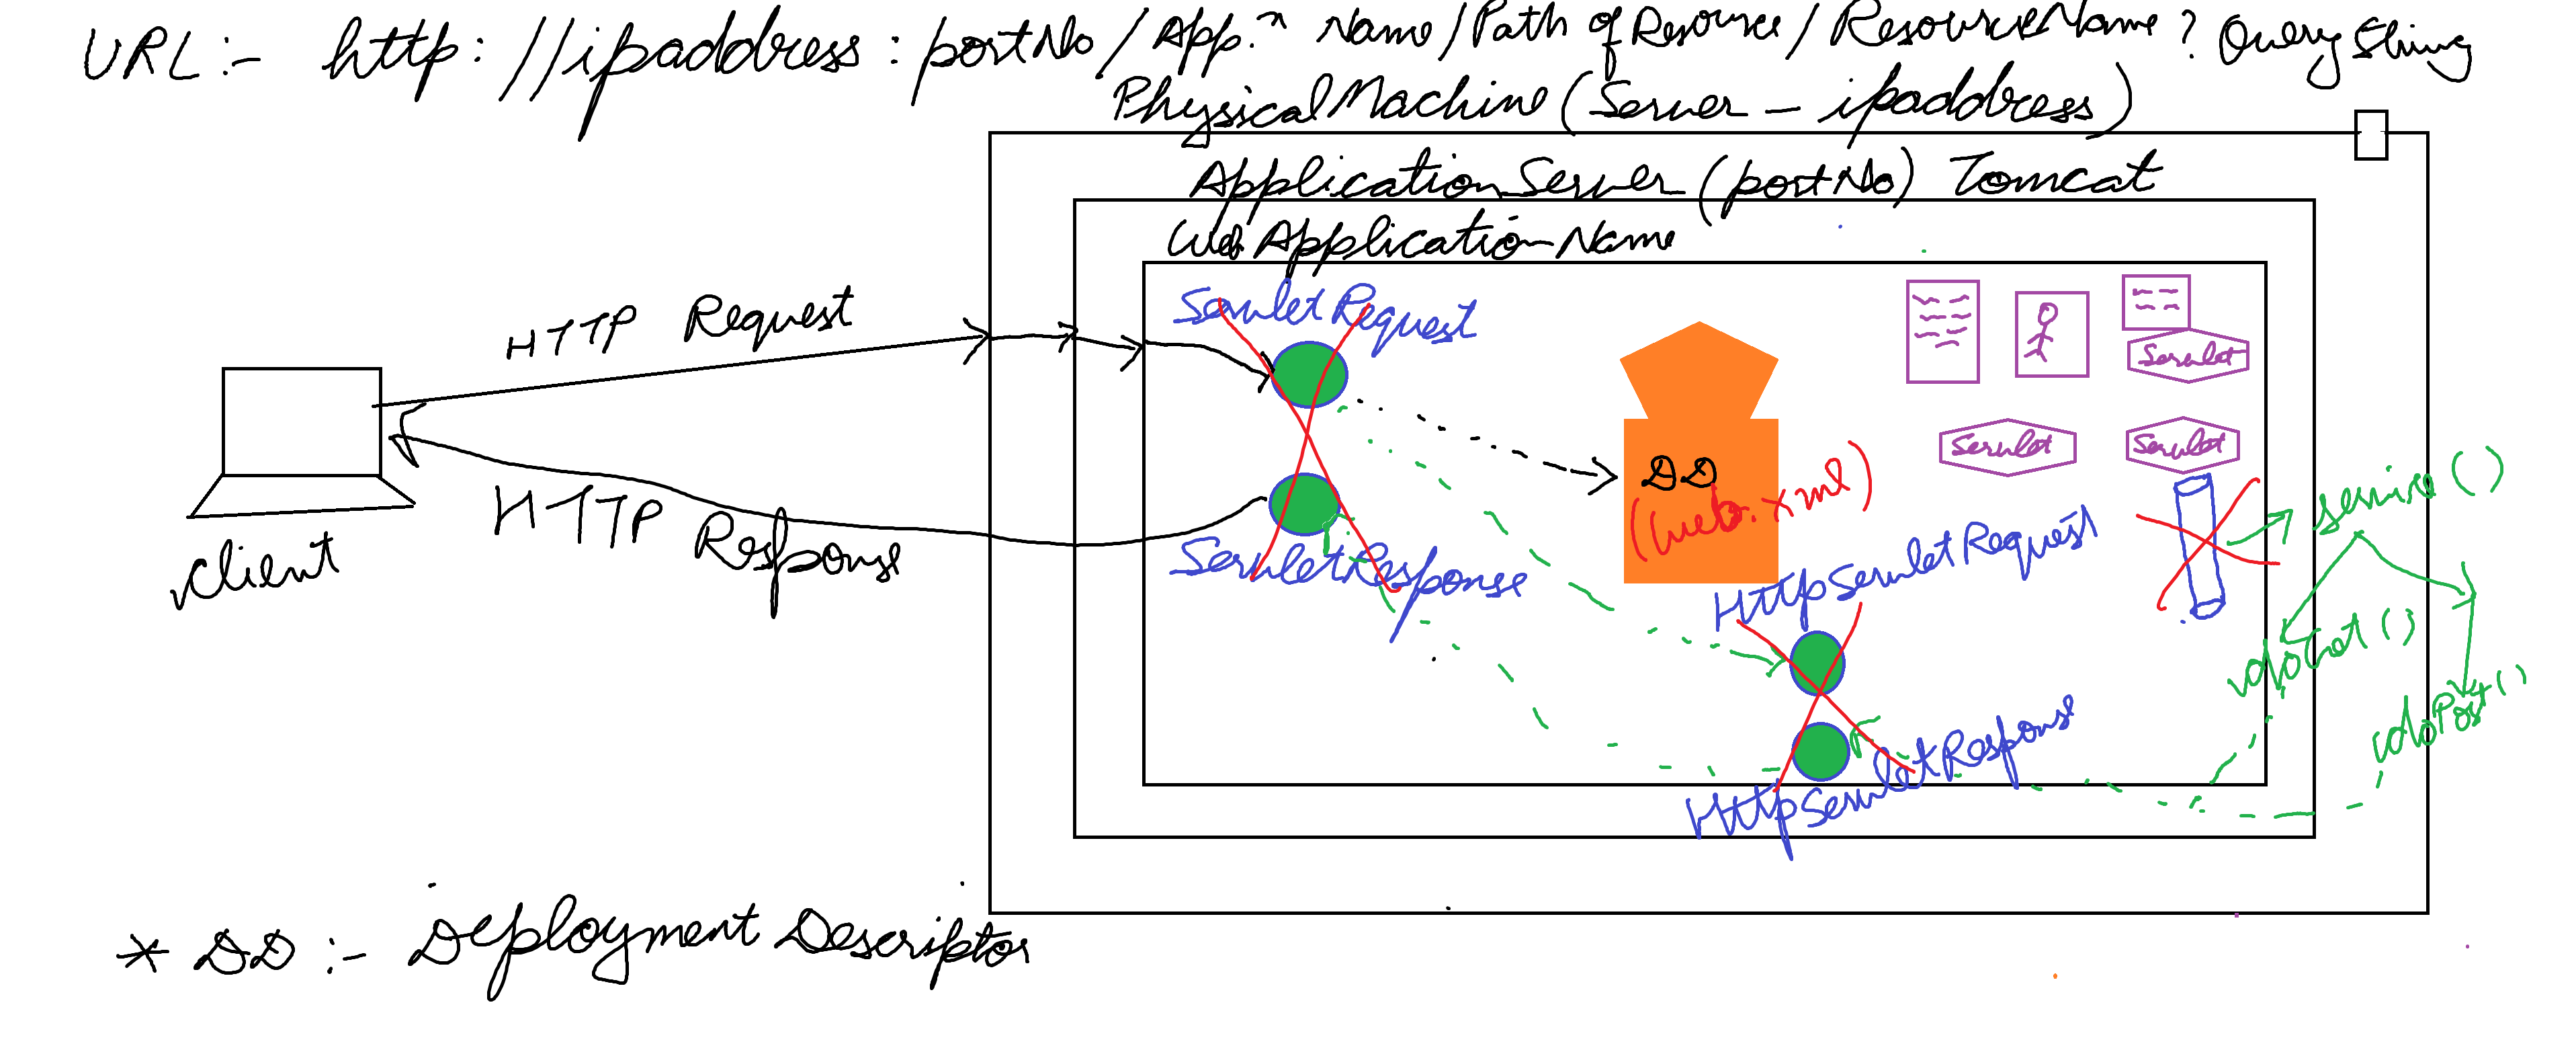 URL :- http://ipaddress:portNo/App.n Name/Path of Resource/ResourceName ? Query String
Physical Machine (Server - ipaddress)
Application Server (portNo) Tomcat
Web Application Name
ServletRequest
HTTP Request
Servlet
Servlet
Servlet
DD
(web.xml)
service ()
HTTP Response
Client
ServletResponse
HttpServletRequest
doGet ()
doPost ()
HttpServletResponse
* DD :- Deployment Descriptor